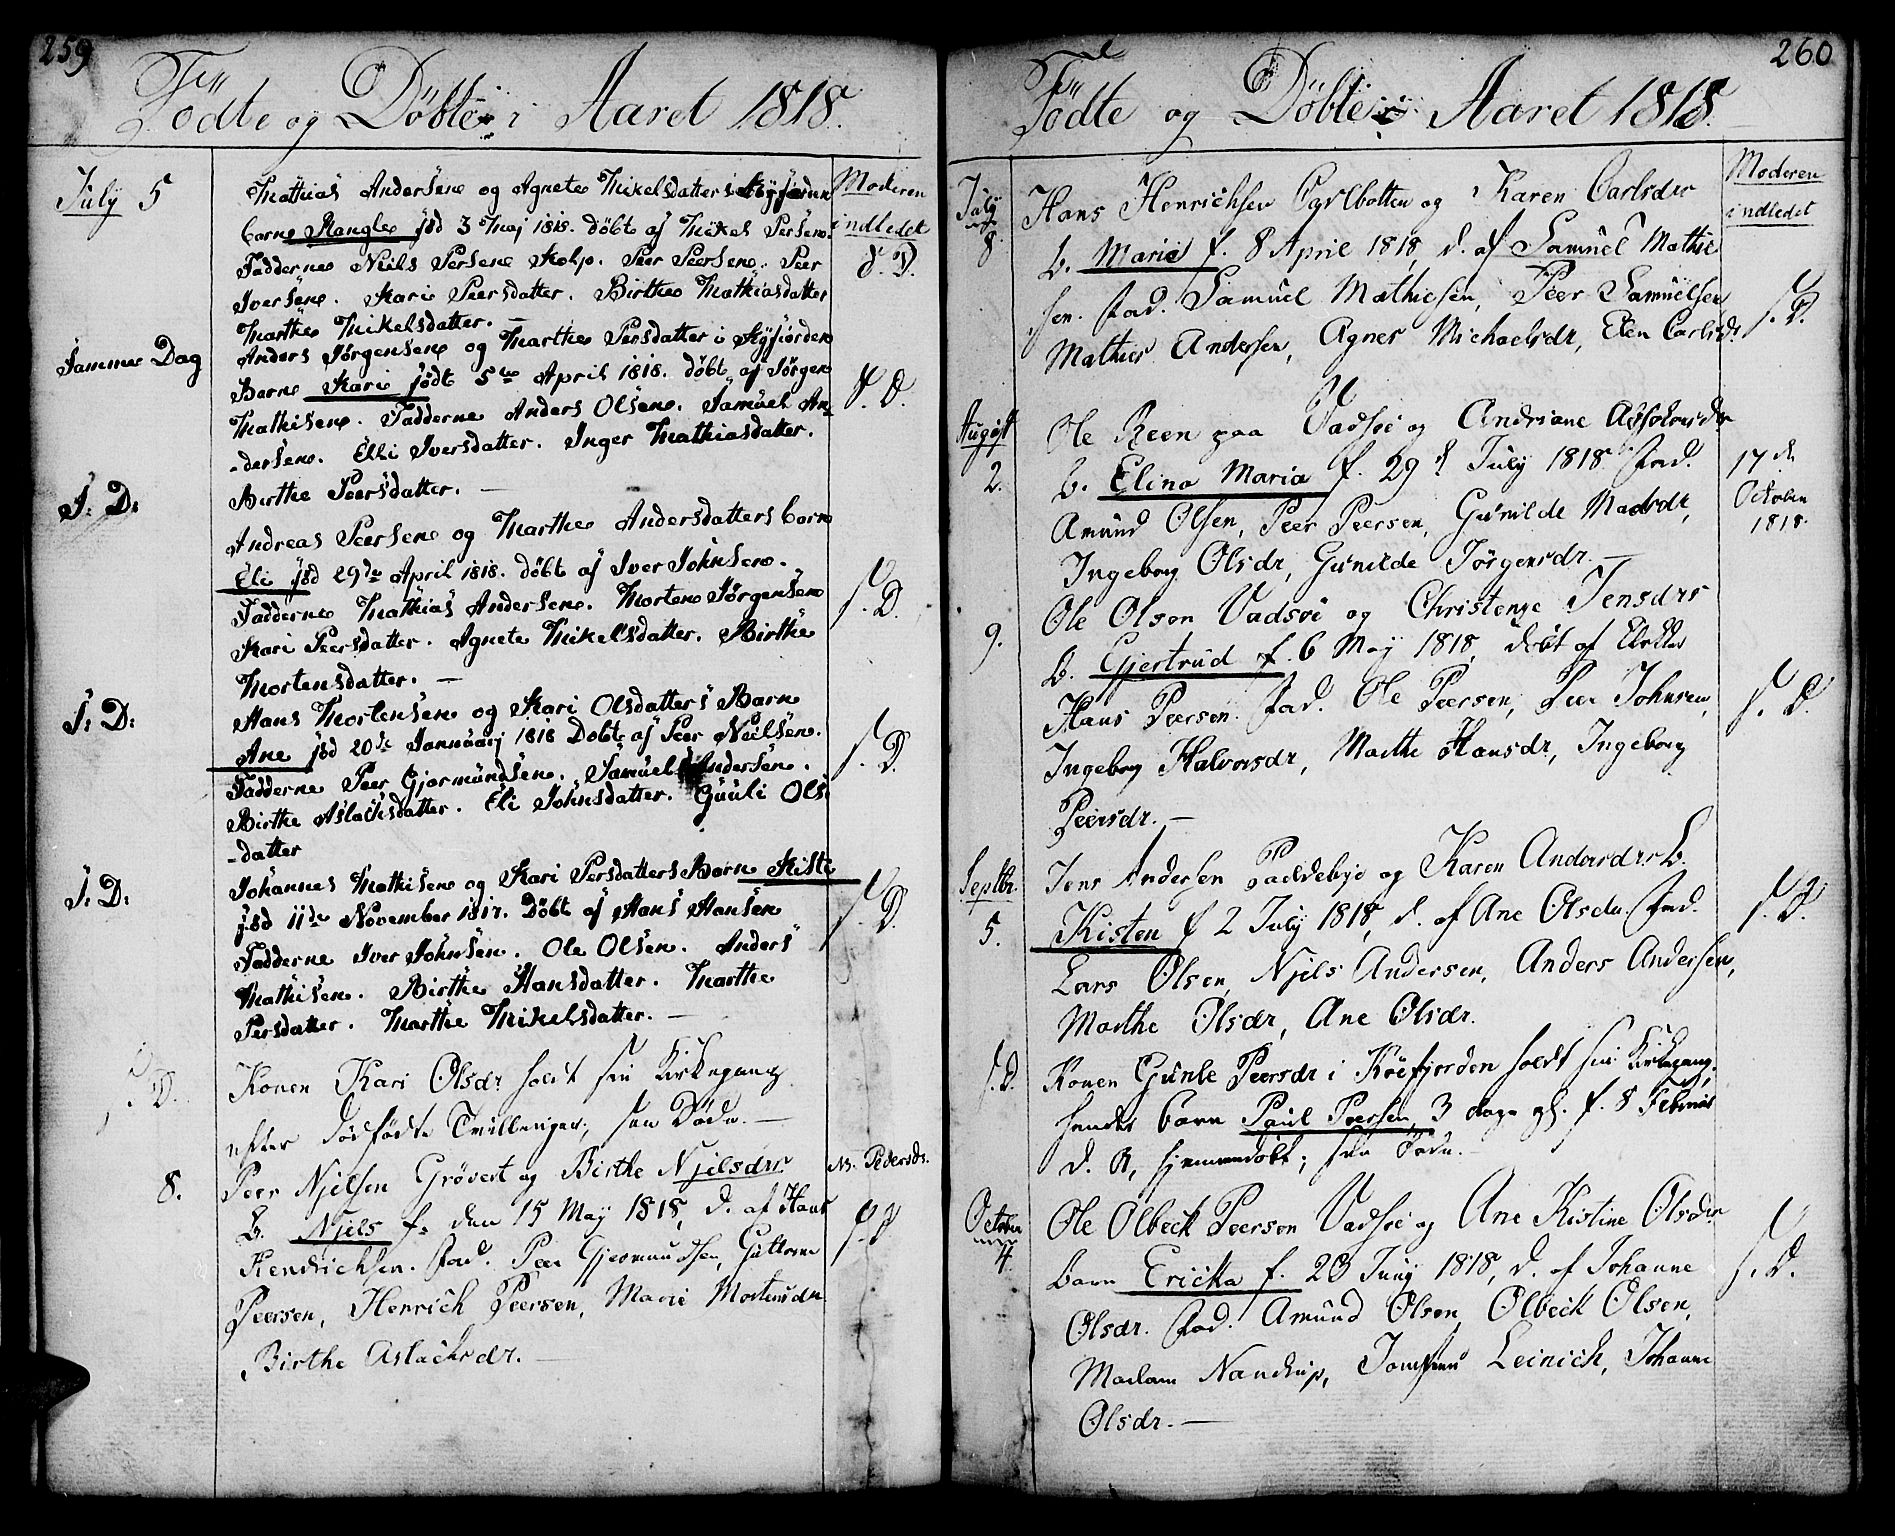 259
Födte og Döbte i Aaret 1818.
July 5
Mathias Andersen og Agnete Mikelsdatters i Kyfjorden
Moderen
indledet
barn Magle fød 3 Maj 1818. döbt af Mikel Persen.
S. D.
Fadderne Niels Persen Kolp. Peer Peersen. Peer
Iversen. Kari Peersdatter. Birthe Mathiasdatter
Marthe Mikelsdatter. —
Samme Dag
Anders Jörgensen og Marthe Persdatter i Kyfjorden
Barn Kari födt 5te April 1818. döbt af Jörgen
S. D.
Mathisen. Fadderne Anders Olsen. Samuel An-
-dersen. Elli Iversdatter. Inger Mathiasdatter.
Birthe Peersdatter. —
S. D:
Andreas Peersen og Marthe Andersdatters barn
Eli fød 29de April 1818. döbt af Iver Johnsen.
S. D.
Fadderne Mathias Andersen. Morten Jörgensen
Kari Peersdatter. Agnete Mikelsdatter. Birthe
Mortensdatter. —
S. D:
Hans Mortensen og Kari Olsdatters Barn
Ane fød 20de Januarj 1818 Döbt af Peer Nielsen.
S. D.
Fadderne Peer Gjermundsen. Samuel Andersen.
Birthe Aslachsdatter. Eli Johnsdatter. Guuli Ols
-datter
S. D:
Johannes Mathisen og Kari Persdatters Barn Kisti
fød 11de November 1817. Döbt af Hans Hansen
S. D.
Fadderne Iver Johnsen. Ole Olsen. Anders
Mathisen. Birthe Hansdatter. Marthe
Persdatter. Marthe Mikelsdatter. —
S. D.
Konen Kari Olsdr holdt sin Kirkegang
efter dödfödte Tvillinger, see Döde. —
8.
Peer Njelsen Grövert og Birthe Njelsdrs
Pedersdr.
B. Njels f. den 15 May 1818, d. af Hans
S. D
Hendrichsen. Fad. Peer Gjermundsen, Guttorm
Peersen, Henrich Peersen, Marie Mortensdr
Birthe Aslachsdr. —
260
Födte og Döbte i Aaret 1818.
July
8.
Hans Henrichsen Carlbotten og Karen Carlsdrs
Moderen
indledet
b. Maria f. 8 April 1818, d. af Samuel Mathie
sen. Fad. Samuel Mathiesen, Peer Samuelsen
S. D.
Mathies Andersen, Agnes Michaelsdr, Elen Carlsdr
August
2.
Ole Reen paa Vadsöe og Andriane Absolonsdr
b. Elina Maria f. 29 d July 1818 Fad.
17 d
October
1818.
Amund Olsen, Peer Peersen, Gunilde Madsdr,
Ingeborg Olsdr, Gunilde Jörgensdr. —
9.
Ole Olsen Vadsöe og Christense Jensdrs
b. Gjertrud f. 6 May 1818, döbt af
Hans Peersen. Fad. Ole Peersen, Peer Johnsen,
S. D.
Ingeborg Halvorsdr, Marthe Hansdr, Ingeborg
Peersdr. —
Septbr.
5.
Jens Andersen Paddebye og Karen Andersdrs b.
Kisten f 2 July 1818, d. af Ane Olsdr. Fad.
S. D.
Lars Olsen, Njels Andersen, Anders Andersen,
Marthe Olsdr, Ane Olsdr.
S. D.
Konen Gunle Peersdr i Köefjorden holdt sin Kirkegang,
hendes barn Paul Peersen, 3 dage gl. f. 8 Februar
d. A, hjemmedöbt; see Döde. —
October
4.
Ole Olbeck Peersen Vadsöe og Ane Kistine Olsdrs
barn Ericka f. 23 Juny 1818, d. af Johanne
S. D.
Olsdr. Fad. Amund Olsen, Olbeck Olsen,
Madam Nandrup, Jomfru Leinich, Johanne
Olsdr. —